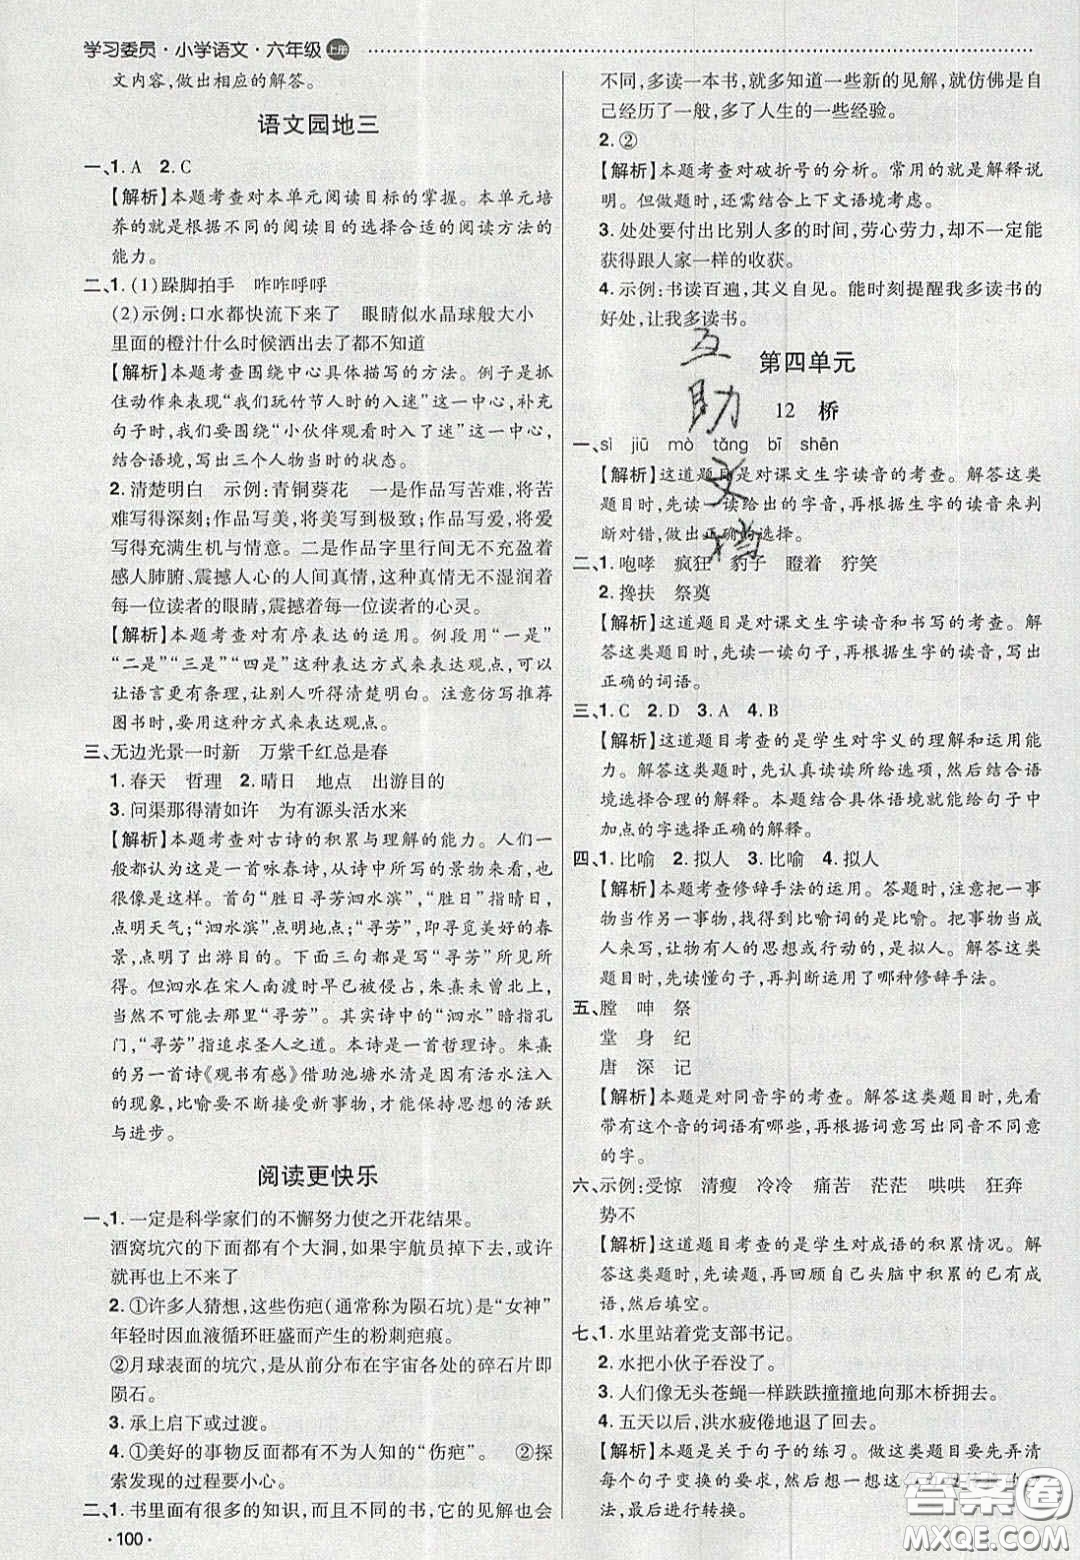 学习委员·小学语文·六年级 上册
文内容,做出相应的解答。
语文园地三
一、1. A 2. C
【解析】本题考查对本单元阅读目标的掌握。本单元培
养的就是根据不同的阅读目的选择合适的阅读方法的
能力。
二、1. (1)跺脚拍手 咋咋呼呼
(2)示例:口水都快流下来了 眼睛似水晶球般大小
里面的橙汁什么时候洒出去了都不知道
【解析】本题考查围绕中心具体描写的方法。例子是抓
住动作来表现“我们玩竹节人时的入迷”这一中心,补充
句子时,要围绕“小伙伴观看时入了迷”这一中心,
结合语境,写出三个人物当时的状态。
2. 清楚明白 示例:青铜葵花 一是作品写苦难,将苦
难写得深刻;作品写美,将美写到极致;作品写爱,将爱
写得充满生机与情意。二是作品字里行间无不充盈着
感人肺腑、震撼人心的人间真情,这种真情无不湿润着
每一位读者的眼睛,震撼着每一位读者的心灵。
【解析】本题考查对有序表达的运用。例段用“一是”
“二是”“三是”“四是”这种表达方式来表达观点,可以
让语言更有条理,让别人听得清楚明白。注意仿写推荐
图书时,要用这种方式来表达观点。
三、无边光景一时新 万紫千红总是春
1. 春天 哲理 2. 晴日 地点 出游目的
3. 问渠那得清如许 为有源头活水来
【解析】本题考查对古诗的积累与理解的能力。人们一
般都认为这是一首咏春诗,从诗中所写的景物来看,也
很像是这样。首句“胜日寻芳泗水滨”,“胜日”指晴日,
点明天气;“泗水滨”点明地点;“寻芳”,即寻觅美好的春
景,点明了出游目的。下面三句都写“寻芳”所见所得。
但泗水在宋人南渡时早已被金人侵占,朱熹未曾北上,
当然不可能去那里“寻芳”。其实诗中的“泗水”暗指孔
门,“寻芳”指追求圣人之道。本诗是一首哲理诗。朱熹
的另一首诗《观书有感》借助池塘水清是因有活水注入
的现象,比喻要不断接受新事物,才能保持思想的活跃
与进步。
阅读更快乐
一、1. 一定是科学家们的不懈努力使之开花结果。
酒窝坑穴的下面都有个大洞,如果宇航员掉下去,或许
就再也上不来了
2. ①许多人猜想,这些伤疤(通常称为陨石坑)是“女神”
年轻时因血液循环旺盛而产生的粉刺疤痕。
②月球表面的坑穴,是从前分布在宇宙各处的碎石片即
陨石。
3. 承上启下或过渡。
4. ①美好的事物反面都有不为人知的“伤疤”。 ②探
索发现的过程要小心。
二、1. 书里面有很多的知识,而且不同的书,它的见解也会
·100·
不同,多读一本书,就多知道一些新的见解,就仿佛是自
己经历了一般,多了人生的一些经验。
2. ②
【解析】本题考查对破折号的分析。常用的就是解释说
明。但做题时,还需结合上下文语境考虑。
3. 处处要付出比别人多的时间,劳心劳力,却不一定能
获得跟人家一样的收获。
4. 示例:书读百遍,其义自见。能时刻提醒我多读书的
好处,让我多读书。
第四单元
12 桥
一、sì jiū mò tǎng bī shēn
【解析】这道题目是对课文生字读音的考查。解答这类
题目时,先读一读给出的字音,再根据生字的读音来判
断对错,做出正确的选择。
二、1. 咆哮 疯狂 豹子 瞪着 狞笑
2. 搀扶 祭奠
【解析】这道题目是对课文生字读音和书写的考查。解
答这类题目时,先读一读句子,再根据生字的读音,写出
正确的词语。
三、1. C 2. D 3. A 4. B
【解析】这道题目考查的是学生对字义的理解和运用能
力。解答这类题时,先认真读读所给选项,然后结合语
境选择合理的解释。本题结合具体语境就能给句子中
加点的字选择正确的解释。
四、1. 比喻 2. 拟人 3. 比喻 4. 拟人
【解析】本题考查修辞手法的运用。答题时,注意把一事
物当作另一事物,找得到比喻词的是比喻。把事物当成
人来写,让物有人的思想或行动的,是拟人。解答这类
题时,先读懂句子,再判断运用了哪种修辞手法。
五、膛 呻 祭
堂 身 纪
唐 深 记
【解析】本题是对同音字的考查。解答这类题时,先看
带有这个音的词语有哪些,再根据词意写出同音不同意
的字。
六、示例:受惊 清瘦 冷冷 痛苦 茫茫 哄哄 狂奔
势不
【解析】这道题目考查的是学生对成语的积累情况。解
答这类题时,先读题,再回顾自己头脑中积累的四字成
语,然后填空。
七、1. 水里站着党支部书记。
2. 水把小伙子吞没了。
3. 人们像无头苍蝇一样跌跌撞撞地向那木桥拥去。
4. 五天以后,洪水疲倦地退了回去。
【解析】本题是关于句子的练习。做这类题目要先弄清
每个句子变换的要求,然后想
法,最后进行转换。
互
助
文
档
答案圈
MXQE.COM